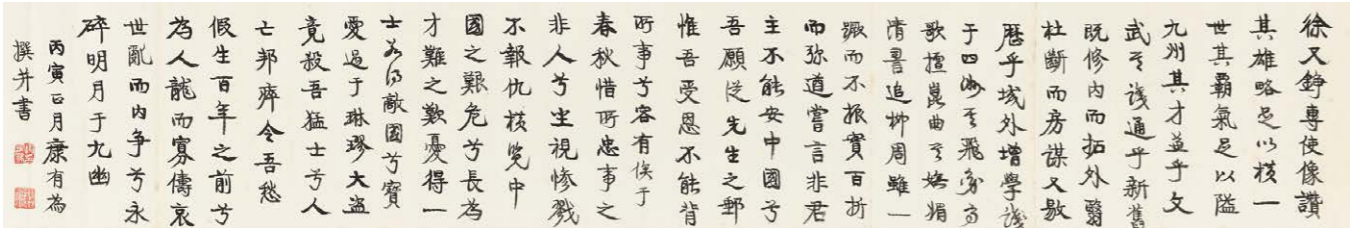 徐又錚專使像讚
其雄略足以橫一
世其霸氣足以隘
九州其才乎文
武其識通乎新舊
既修內而拓外翳
杜斷而房謀又敭
歷乎域外增學識
于四海其飛動高
歌擅崑曲其嫵媚
清書追柳周雖一
蹶而不振實百折
而弥道嘗言非君
主不能安中國兮
吾願從先生之郵
惟吾受恩不能背
所事兮容有俟于
春秋惜所忠事之
非人兮坐視慘戮
不報仇橫覽中
國之艱危兮長為
才難之歎憂得一
士若敵國兮寶
愛過于琳璆大盜
竟殺吾猛士兮人
亡邦瘁令吾愁
假生百年之前兮
為人龍而寡儔哀
世亂而內爭兮永
碎明月于九幽
丙寅正月康有為
撰并書